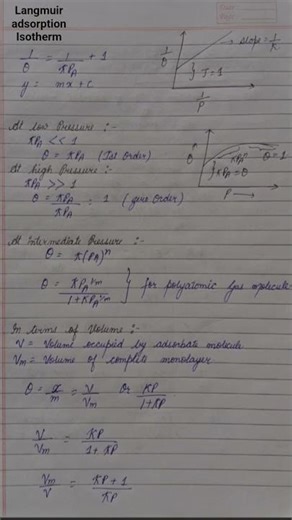 Langmuir
adsorption
Isotherm
1/θ = 1/KP_A + 1
y = mx + c
1/θ
→ slope = 1/K
} I = 1
1/P
At low Pressure :-
KP_A << 1
θ = KP_A (Ist Order)
At high Pressure :-
KP_A >> 1
θ = KP_A/KP_A = 1 (zero Order)
θ
θ = 1
} KP_A = θ
P →
At Intermediate Pressure :-
θ = K(P_A)^n
θ = KP_A^1/m / 1+KP_A^1/m } for polyatomic gas molecule
In terms of Volume :-
V = Volume occupied by adsorbate molecule
V_m = Volume of complete monolayer
θ = x/m = V/V_m Or KP/1+KP
V/V_m = KP/1+KP
V_m/V = KP+1/KP